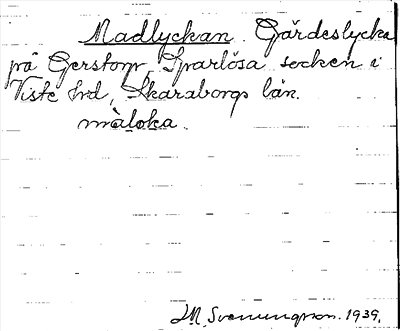 Madlyckan. Gärdeslycka
på Gerstorp, Sparlösa socken i
Viste hrd, Skaraborgs län.
màloka.
J.M. Svenungson. 1939.